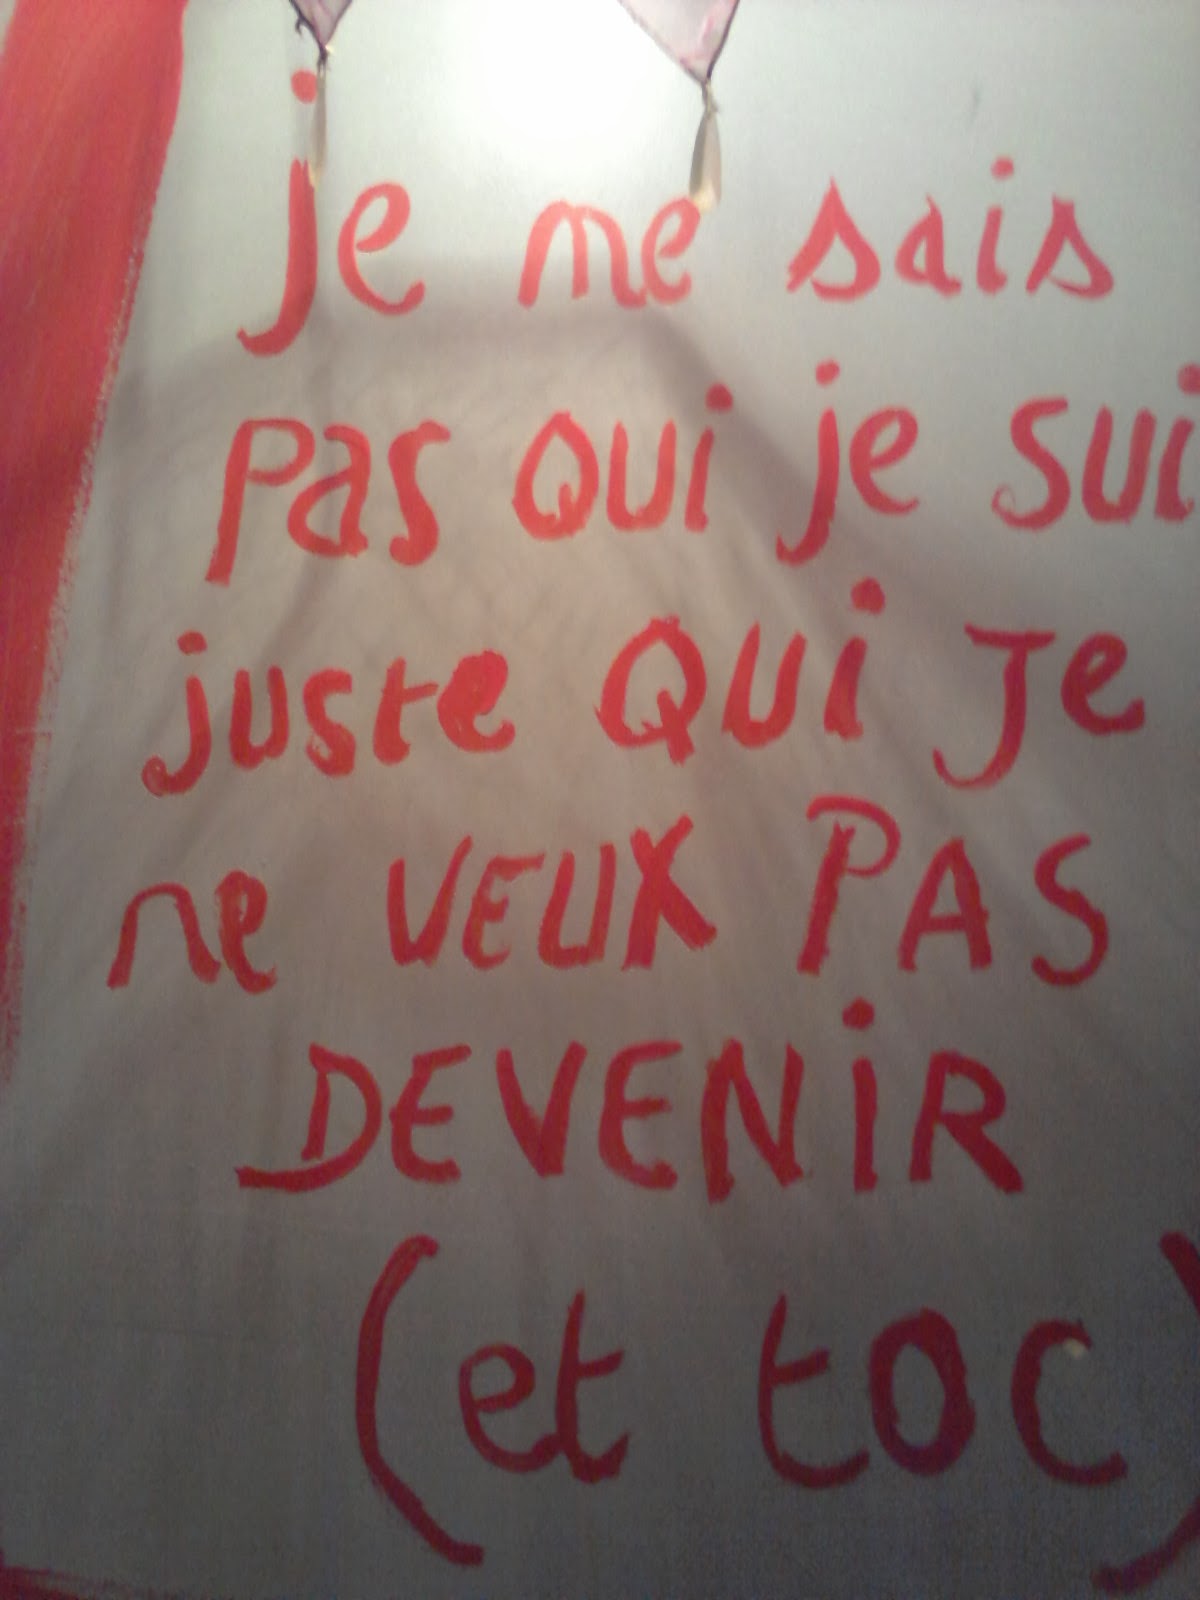 je me sais
pas qui je sui
juste qui je
ne VEUX PAS
DEVENiR
(et toc)